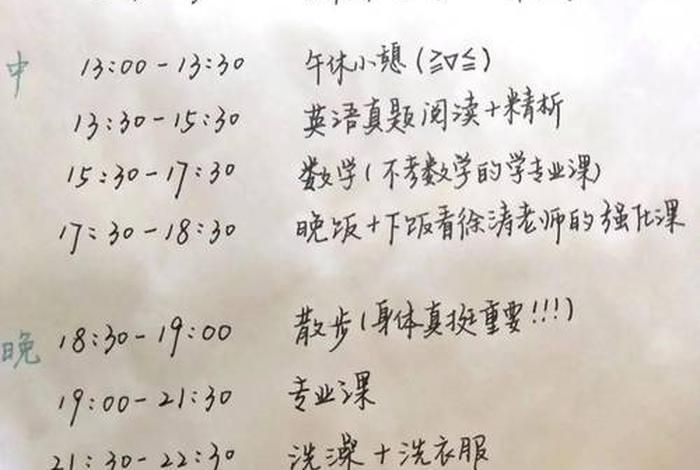 中 13:00-13:30 午休小憩(≧∇≦)
13:30-15:30 英语真题阅读+精析
15:30-17:30 数学(不考数学的学专业课)
17:30-18:30 晚饭+下饭看徐涛老师的强化课
晚 18:30-19:00 散步(身体真挺重要!!!)
19:00-21:30 专业课
21:30-22:30 洗澡+洗衣服